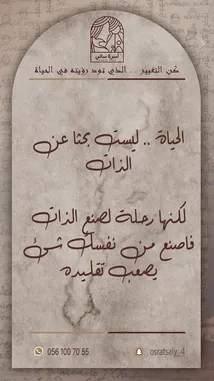 أسرة ساتي
كن التغيير .. الذي تود رؤيته في الحياة
الحياة .. ليست بحثا عن
الذات
لكنها رحلة لصنع الذات
فاصنع من نفسك شئ
يصعب تقليده
056 100 70 55
osratsaly_4